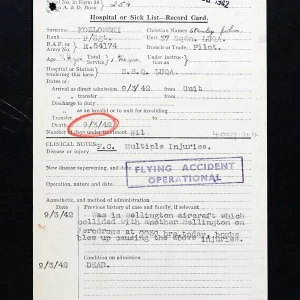 No. in Form 39
& A. & D. Book } 254
1942
Hospital or Sick List—Record Card.
Surname KOZLOWSKI Christian Names Stanley John
Rank P/Sgt. Unit 37 Sqdn. LUQA.
R.A.F. or Army No. R.54174 Branch or Trade Pilot.
Age Service Under instruction as
Hospital or Station rendering this form } S.S.Q. LUQA
Date of
Arrival as direct admission 9/3/42 from Unit
„ transfer from
Discharge to duty
„ as an invalid or to unit for invaliding
Transfer to
Death 9/3/42
Number of days under treatment Nil.
CLINICAL NOTES:
Disease or injury F.C. Multiple Injuries.
New disease supervening, and date
FLYING ACCIDENT
OPERATIONAL
Operation, nature and date
Anæsthetic, and method of administration
Date Previous history of case and family, if relevant
9/3/42 Was in Wellington aircraft which
collided with another Wellington on
Aerodrome at 0030 hrs today, bombs
blew up causing the above injuries.
Date Condition on admission
9/3/42 DEAD.